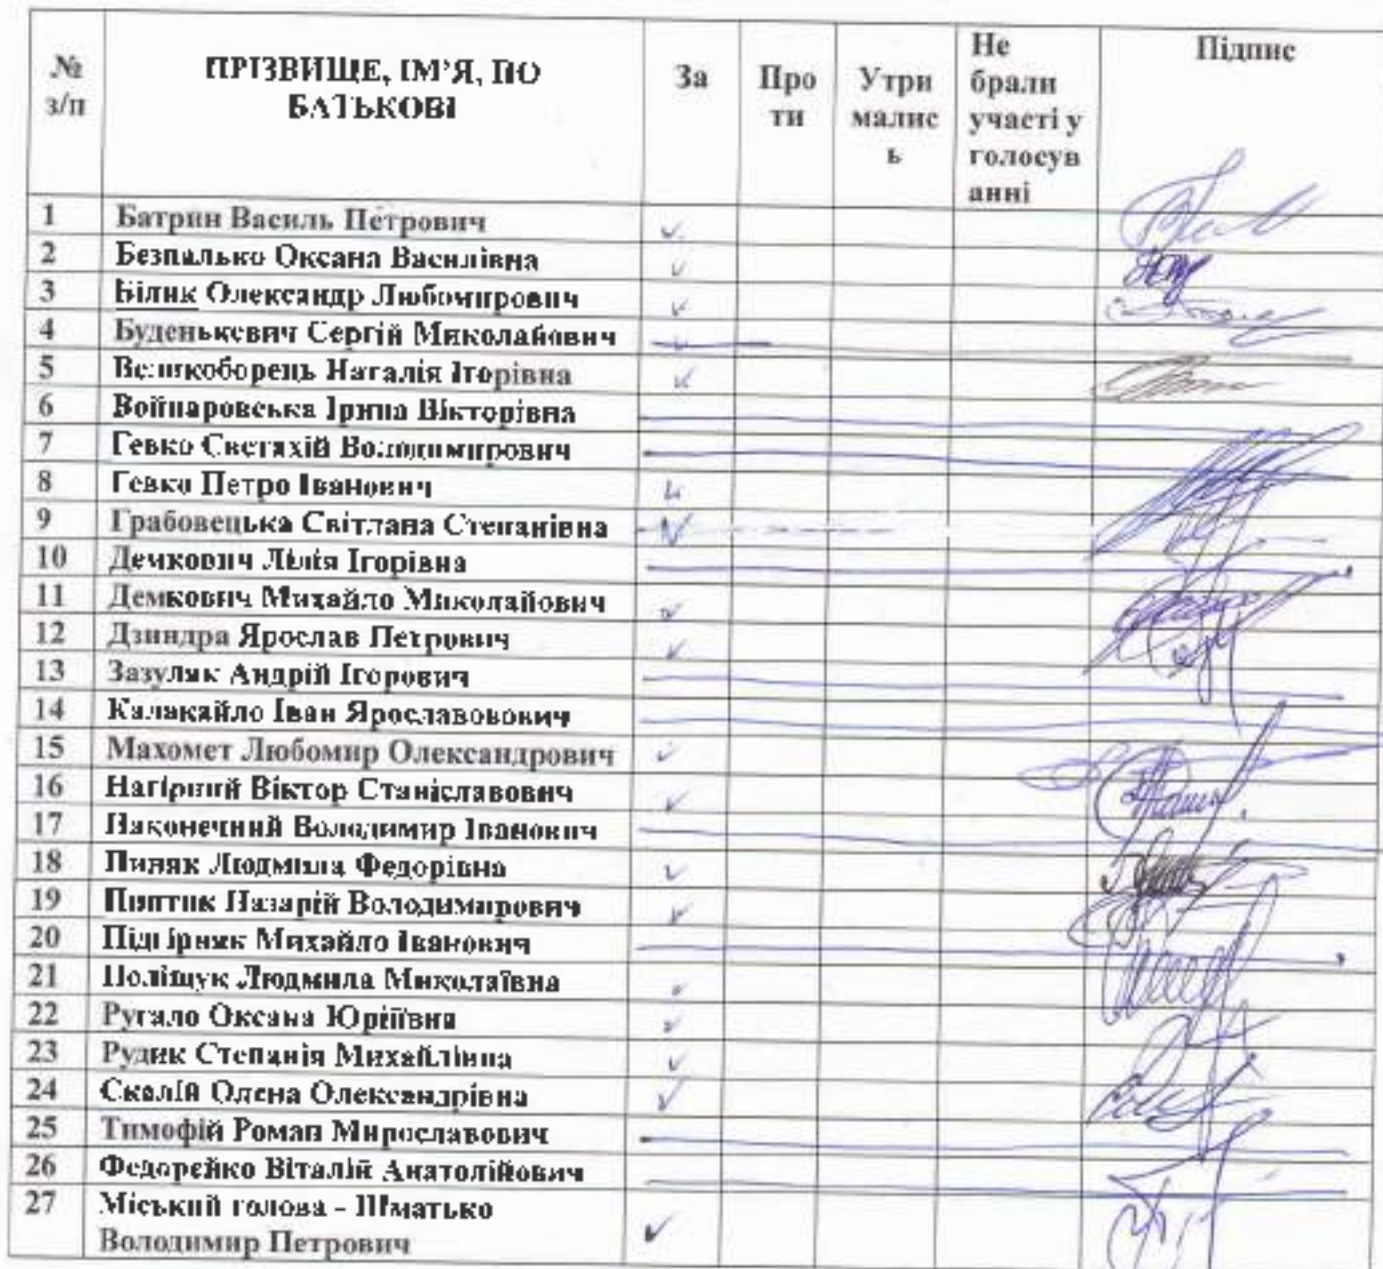 № з/п
ПРІЗВИЩЕ, ІМ’Я, ПО БАТЬКОВІ
За
Проти
Утрималис
ь
Не
брали
участі у
голосув
анні
Підпис
1 Батрин Василь Петрович
2 Безпалько Оксана Василівна
3 Білик Олександр Любомирович
4 Буденькевич Сергій Миколайович
5 Великоборець Наталія Ігорівна
6 Войнаровська Ірина Вікторівна
7 Гевко Євстахій Володимирович
8 Гевко Петро Іванович
9 Грабовецька Світлана Степанівна
10 Демкович Лілія Ігорівна
11 Демкович Михайло Миколайович
12 Дзиндра Ярослав Петрович
13 Зазуляк Андрій Ігорович
14 Калакайло Іван Ярославович
15 Махомет Любомир Олександрович
16 Нагірний Віктор Станіславович
17 Наконечний Володимир Іванович
18 Пиняк Людмила Федорівна
19 Назарій Володимирович
20 Підгірняк Михайло Іванович
21 Поліщук Людмила Миколаївна
22 Ругало Оксана Юріївна
23 Рудик Степанія Михайлівна
24 Скалій Олена Олександрівна
25 Тимофій Роман Мирославович
26 Федорейко Віталій Анатолійович
27 Міський голова - Шматько
Володимир Петрович